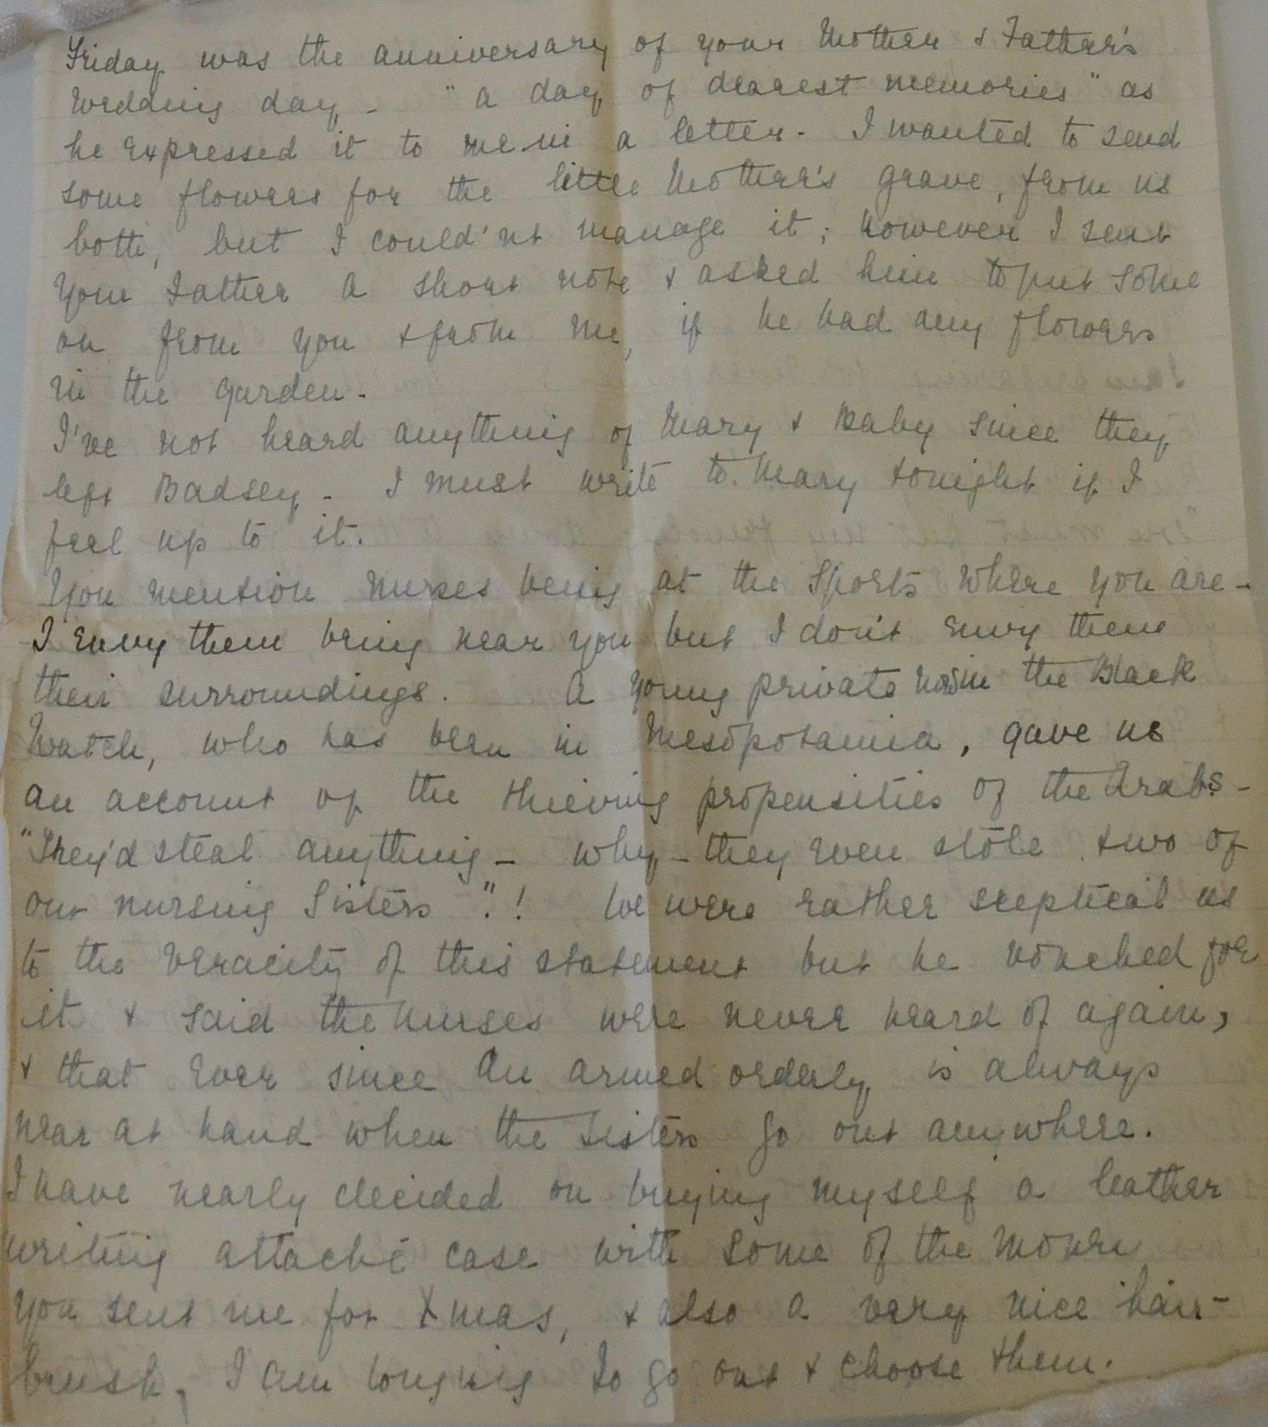 Friday was the anniversary of your Mother & Father's
wedding day - "a day of dearest memories" as
he expressed it to me in a letter. I wanted to send
some flowers for the little Mother's grave, from us
both, but I could'nt manage it; however I sent
your Father a short note & asked him to put some
on from you & from me, if he had any flowers
in the garden.
I've not heard anything of Mary & Baby since they
left Badsey. I must write to Mary tonight if I
feel up to it.
You mention nurses being at the Sports where you are -
I envy them being near you but I don't envy them
their surroundings. A young private in the Black
Watch, who has been in Mesopotamia, gave us
an account of the thieving propensities of the Arabs -
"They'd steal anything - why - they even stole two of
our nursing Sisters"! We were rather sceptical as
to the veracity of this statement but he vouched for
it & said the nurses were never heard of again,
& that ever since an armed orderly is always
near at hand when the Sisters go out anywhere.
I have nearly decided on buying myself a leather
writing attaché case with some of the money
you sent me for Xmas, & also a very nice hair-
brush, I am longing to go out & choose them.